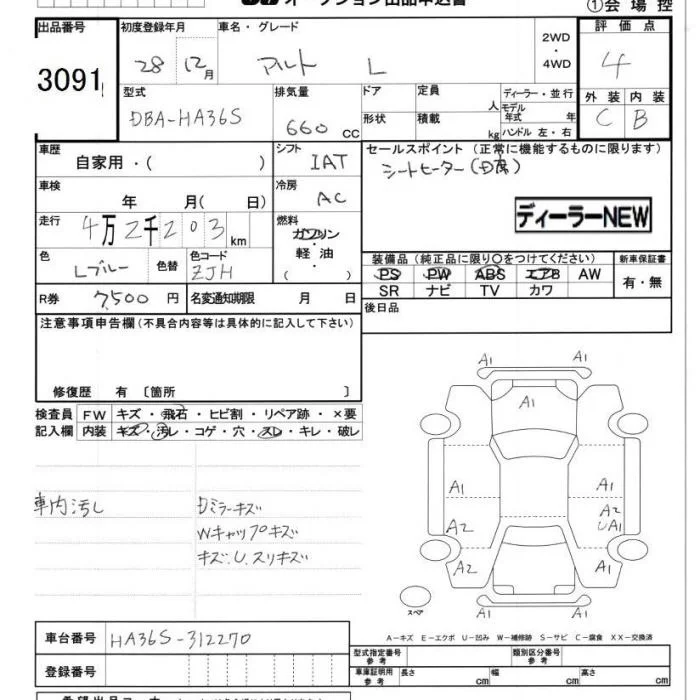 オークション出品申込書
①会場控
出品番号 初度登録年月 車名・グレード 2WD・4WD 評価点
3091 28 12月 アルト L 4
型式 排気量 ドア 定員 人 ディーラー・並行 外装 内装
DBA-HA36S 660cc 形状 積載 kg モデル年式 年 ハンドル 左・右 C B
車歴 自家用・( ) シフト IAT セールスポイント(正常に機能するものに限ります)
シートヒーター(D席)
車検 年 月( 日) 冷房 AC
ディーラーNEW
走行 4万2千203km 燃料 ガソリン・軽油・( )
色 Lブルー 色替 色コード ZJH
装備品(純正品に限り○をつけてください) 新車保証書
PS PW ABS エアB AW 有・無
SR ナビ TV カワ
R券 7,500円 名変通知期限 月 日
後日品
注意事項申告欄(不具合内容等は具体的に記入して下さい)
修復歴 有〔箇所 〕
検査員 FW キズ・飛石・ヒビ割・リペア跡・×要
記入欄 内装 キズ・汚レ・コゲ・穴・スレ・キレ・破レ
車内汚し Dミラーキズ
Wキャップキズ
キズ.U.スリキズ
A1 A1
A1
A1 A1
A2 A2
UA1
A2 A1
A1 A1
スペア
A-キズ E-エクボ U-凹み W-補修跡 S-サビ C-腐食 XX-交換済
車台番号 HA36S-312270
登録番号
型式指定番号 参考 類別区分番号 参考
車庫証明用 参考 長さ cm 幅 cm 高さ cm
希望出品コーナー